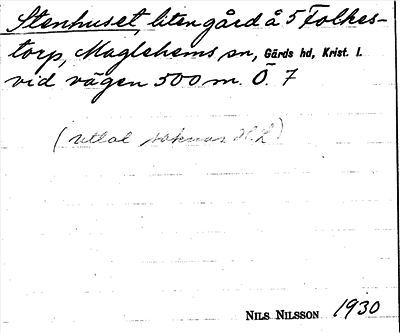 Stenhuset, liten gård å 5 Folkes-
torp, Maglehems sn, Gärds hd, Krist. l.
vid vägen 500 m. Ö. 7
(uttal saknas
NILS NILSSON 1930